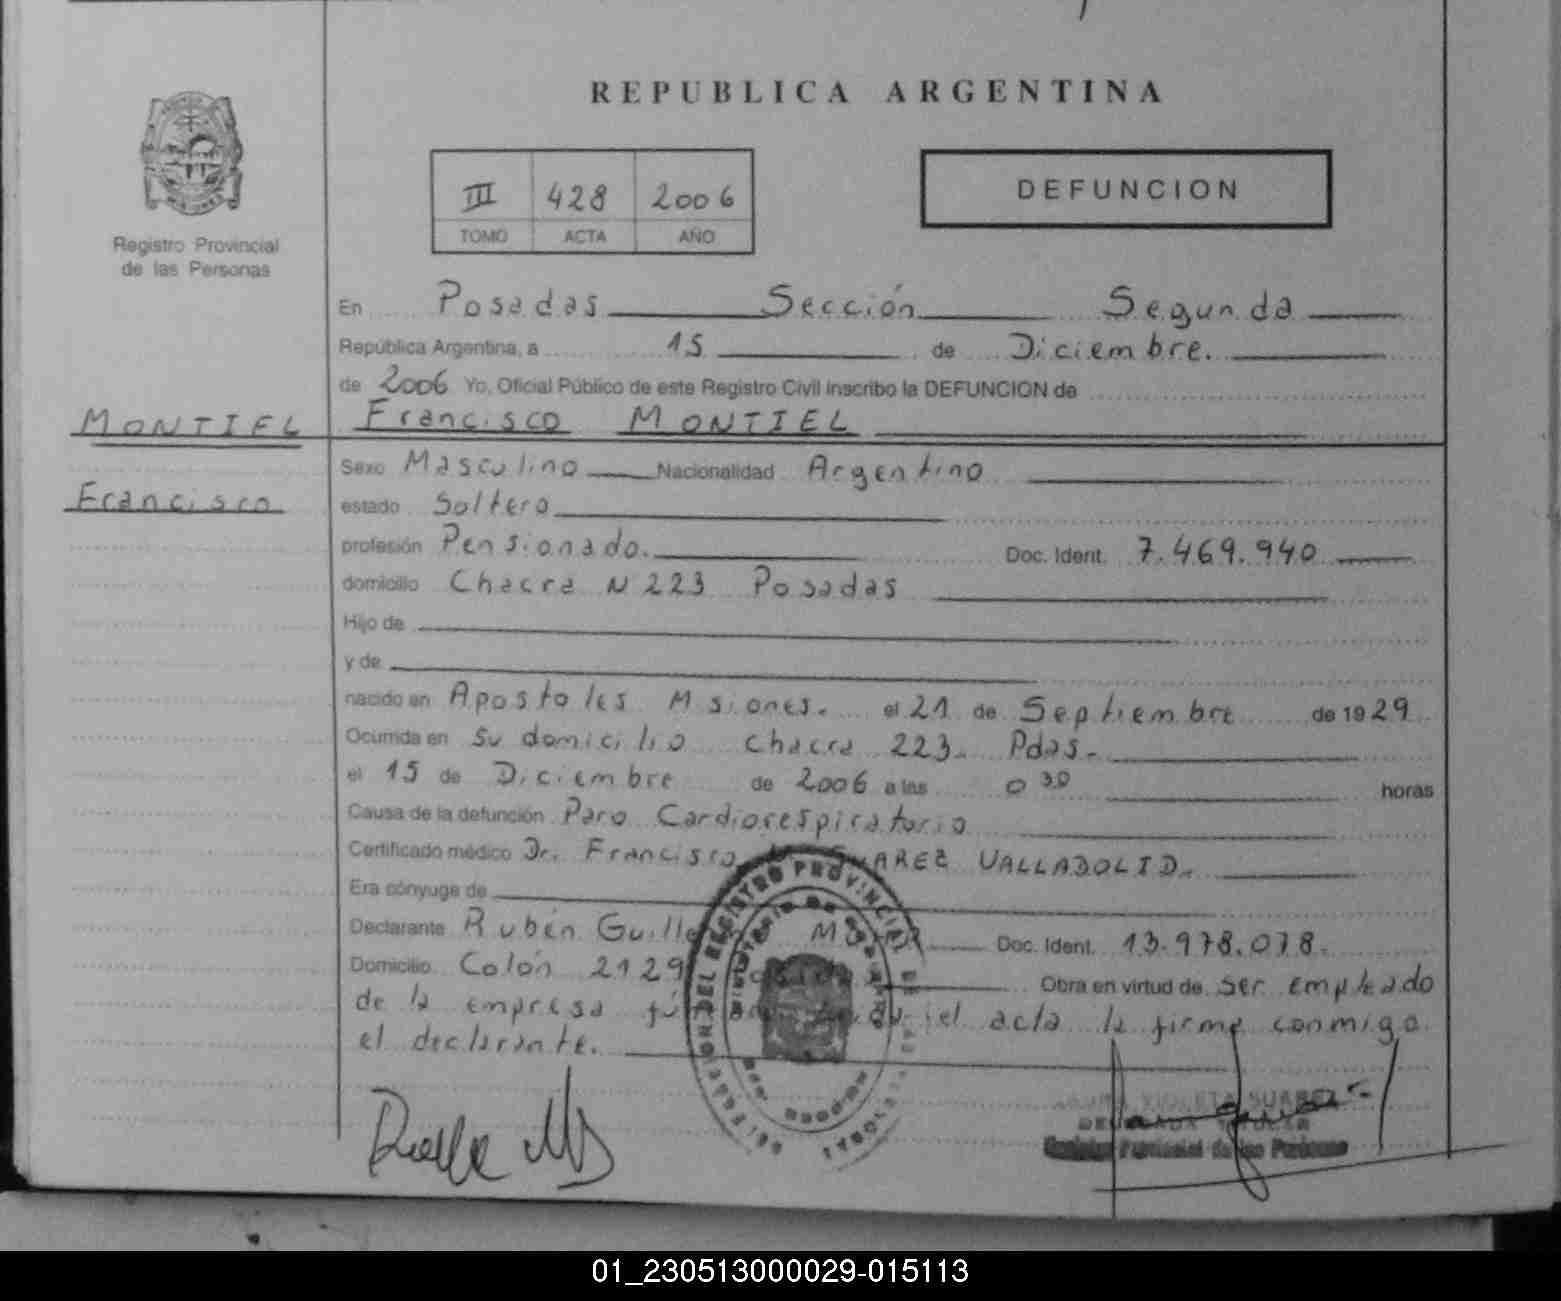 REPUBLICA ARGENTINA
III 428 2006
TOMO ACTA AÑO
DEFUNCION
Registro Provincial
de las Personas
En Posadas Sección Segunda
República Argentina, a 15 de Diciembre.
de 2006 Yo, Oficial Público de este Registro Civil inscribo la DEFUNCION de
MONTIEL Francisco MONTIEL
Sexo Masculino Nacionalidad Argentino
Francisco
estado Soltero
profesión Pensionado. Doc. Ident. 7.469.940
domicilio Chacra N 223 Posadas
Hijo de
y de
nacido en Apostoles Misiones. el 21 de Septiembre de 1929
Ocurrida en Su domicilio Chacra 223. Pdas.
el 15 de Diciembre de 2006 a las 0 30 horas
Causa de la defunción Paro Cardiorespiratorio
Certificado médico Dr. Francisco SUAREZ VALLADOLID.
Era cónyuge de
Declarante Rubén Doc. Ident. 13.978.078.
Domicilio Colón 2129 Obra en virtud de ser empleado
de la empresa el acta la firma conmigo
el declarante.
DEL REGISTRO PROVINCIAL
VIOLETA SUAREZ
Registro Provincial de las Personas
01_230513000029-015113